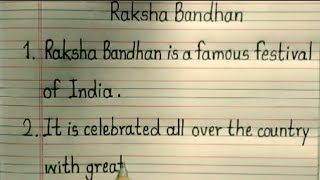 Raksha Bandhan
1. Raksha Bandhan is a famous festival
of India.
2. It is celebrated all over the country
with great